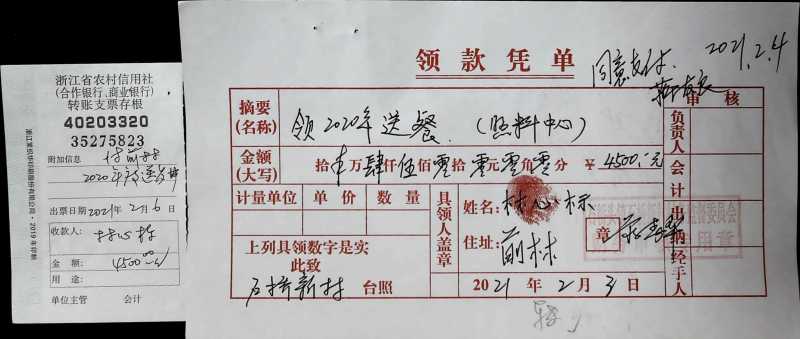 浙江省农村信用社
(合作银行、商业银行)
转账支票存根
40203320
35275823
附加信息 付前林
2020年
出票日期 2021年 2月 6日
收款人:
林心标
金 额: 4500元
用 途:
单位主管 会计
2019年印制
领款凭单
同意支付 2021.2.4
审 核
摘要(名称) 领2020年送餐 (照料中心)
金额(大写) 拾 万肆仟伍佰零拾零元零角零分 ¥4500元
计量单位 单 价 数 量
上列具领数字是实
此致
石桥新村 台照
具领人盖章
姓名: 林心标
住址: 前林 章
2021年 2月 3日
负责人
会计
出纳
经手人